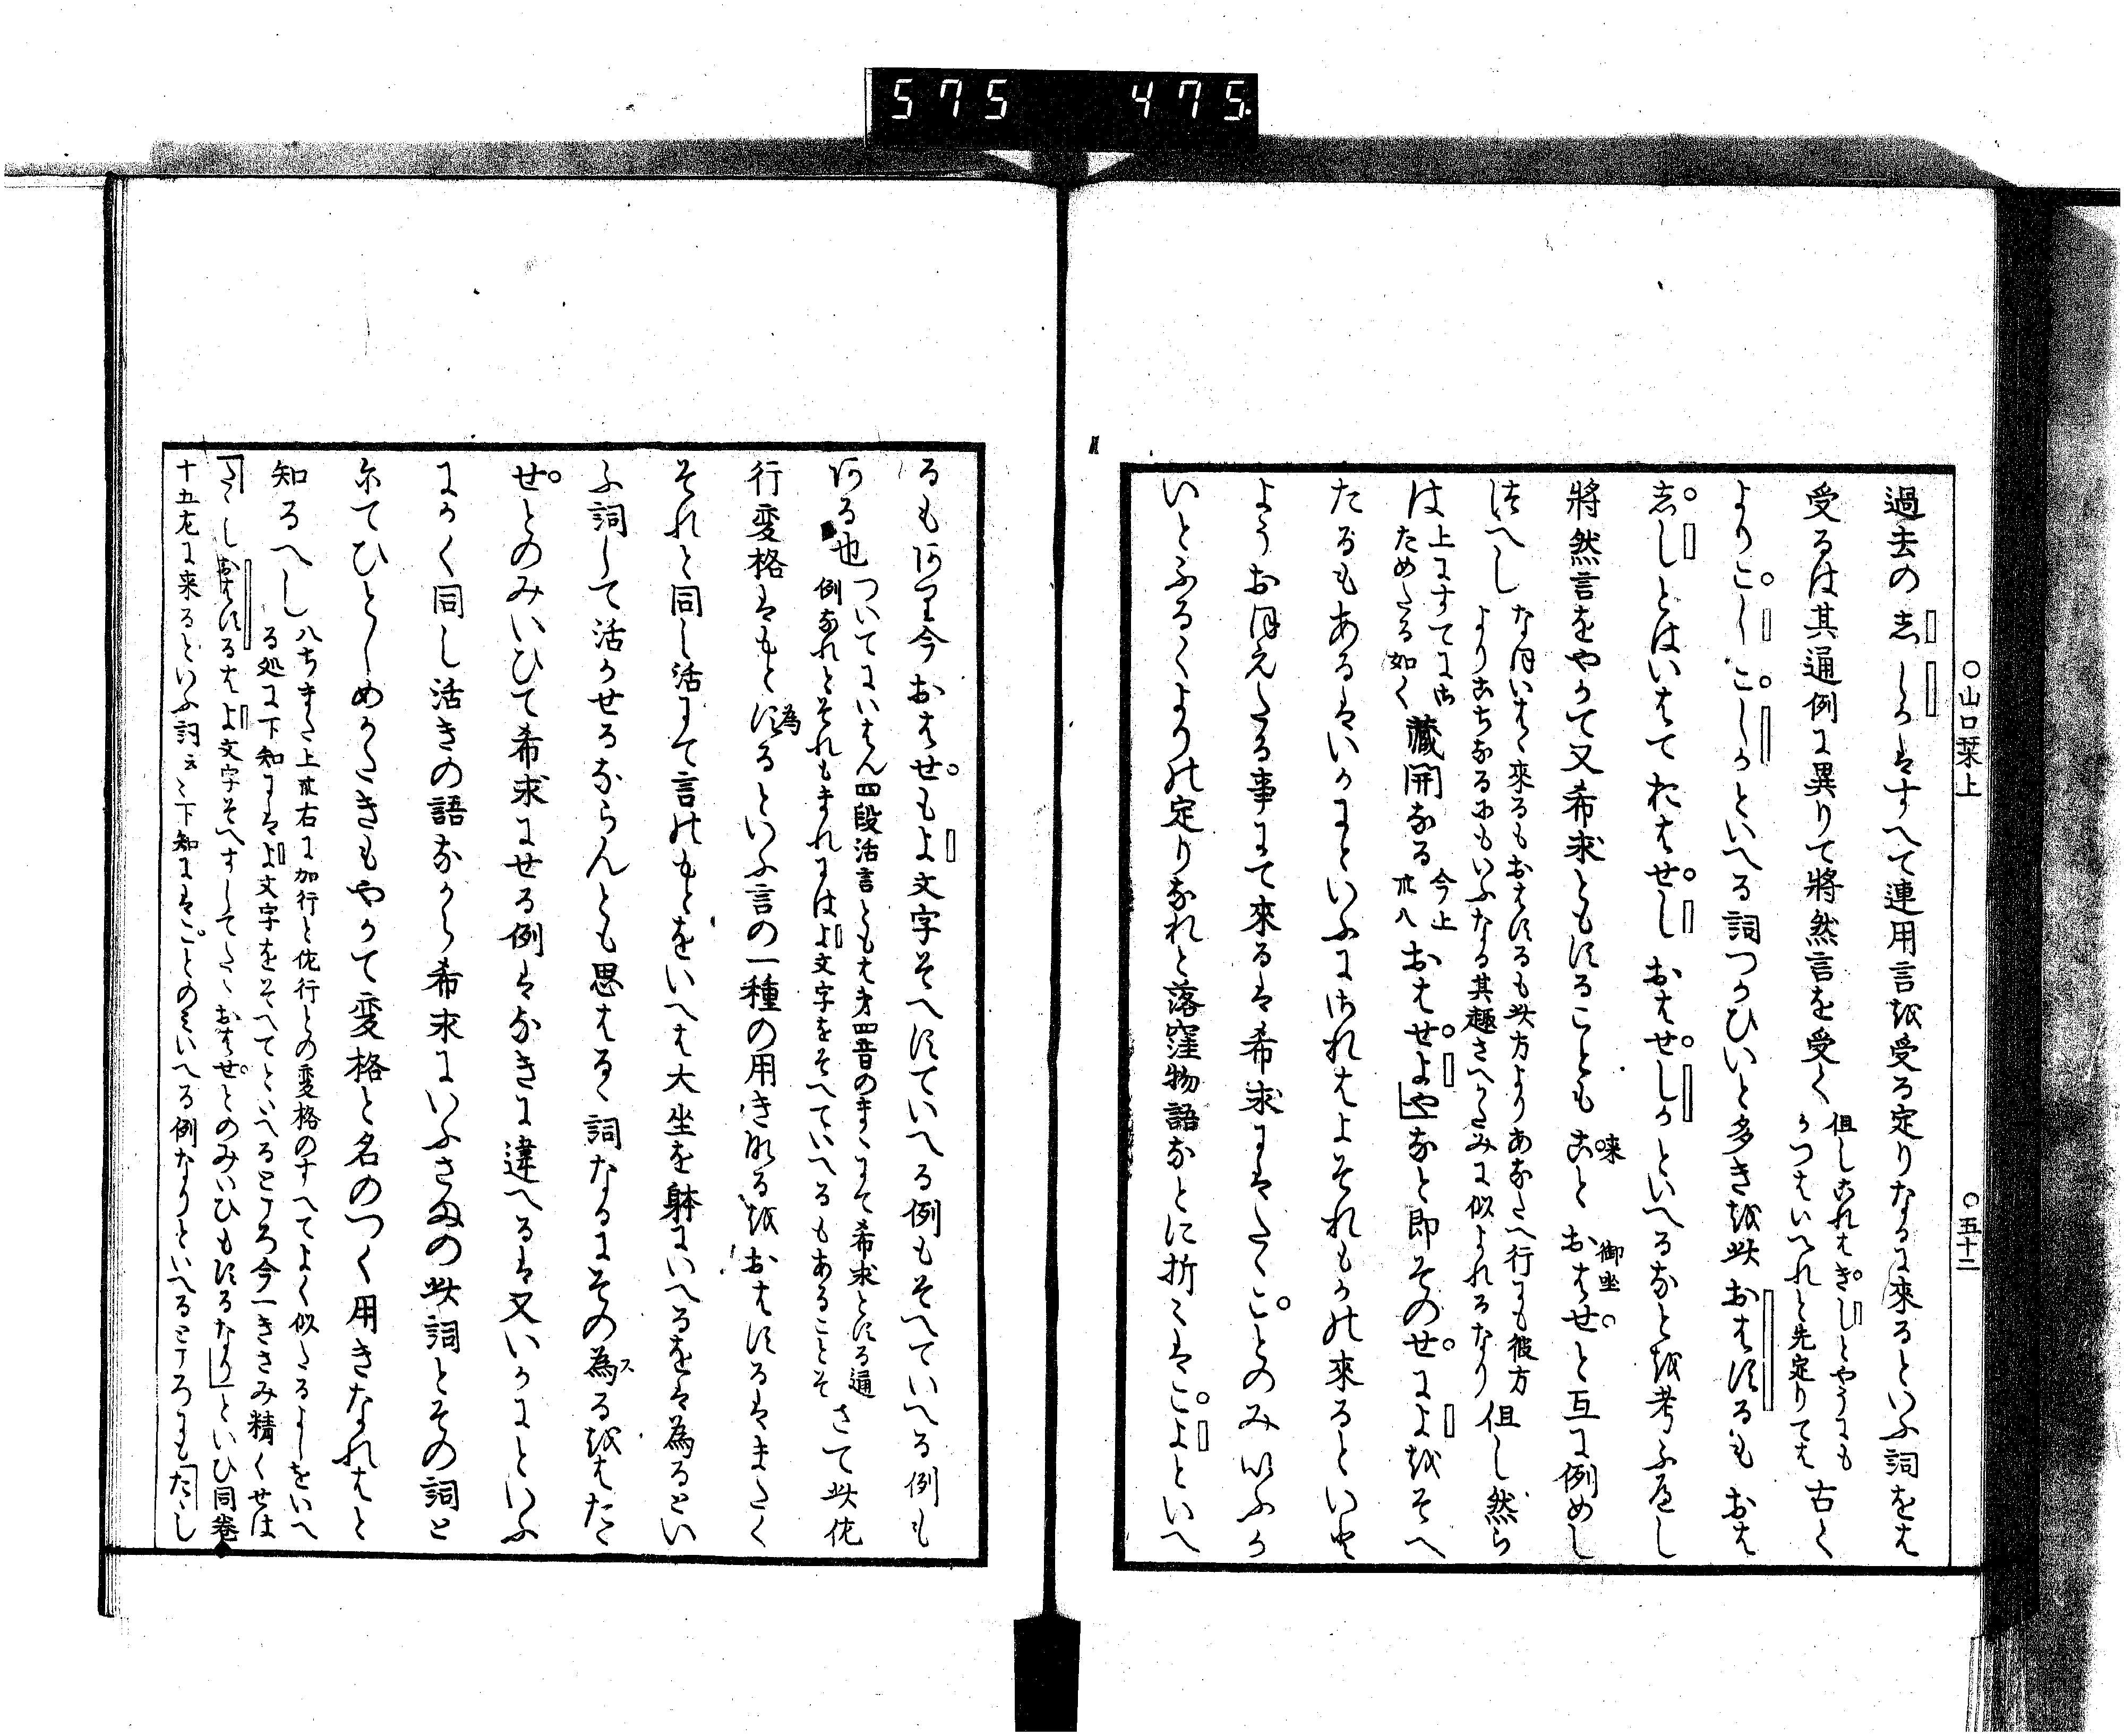 575 475.
○山口栞上 ○五十二
過去の志しかはすへて連用言を受る定りなるに來るといふ詞をは
受るは其通例に異りて將然言を受く
但しこれはきしとやうにも
かつはいへれと先定りては
古く
よりこしこしかといへる詞つかひいと多きを此おはするもおは
志しとはいはておはせしおはせしかといへるなとを考ふへし
將然言をやかて又希求ともすることも來こと御坐おはせと互に例めし
つへし
なほいはゝ來るもおはするも此方よりあなたへ行にも彼方
よりこちなるにもいふなる其趣さへかたみに似よれるなり
但し然ら
は
上にすてにも
ためたる如く
藏開なる
今上
廿八
おはせよやなと即そのせによをそへ
たるもあるはいかにといふにされはよそれもかの來るといひ
ようおほえたる事にて來るは希求にはたゝことのみいふか
いとふるくよりの定りなれと落窪物語なとに折々はこよといへ
るもあり今おはせもよ文字そへすていへる例もそへていへる例も
ある也
ついてにいはん四段活言ともは才四音のまゝにて希求とする通
例なれとそれもまれにはよ文字をそへていへるもあることそ
さて此佐
行変格はもと為するといふ言の一種の用きなるをおはするはまたく
それと同し活にて言のもとをいへは大坐を躰にいへるをは為るとい
ふ詞して活かせるならんとも思はるゝ詞なるにその為るをはたゝ
せとのみいひて希求にせる例はなきに違へるは又いかにといふ
にかく同し活きの語なから希求にいふさまの此詞とその詞と
にてひとしめかたきもやかて変格と名のつく用きなれはと
知るへし
八ちまた上廿右に加行と佐行との変格のすへてよく似たるよしをいへ
る処に下知にはよ文字をそへてといへるところ今一きさみ精くせは
たゝしおはするはよ文字そへすしてたゝおはせとのみいひもするなりといひ同巻
十五左に来るといふ詞云々下知にはことのみいへる例なりといへるところにもたゝし